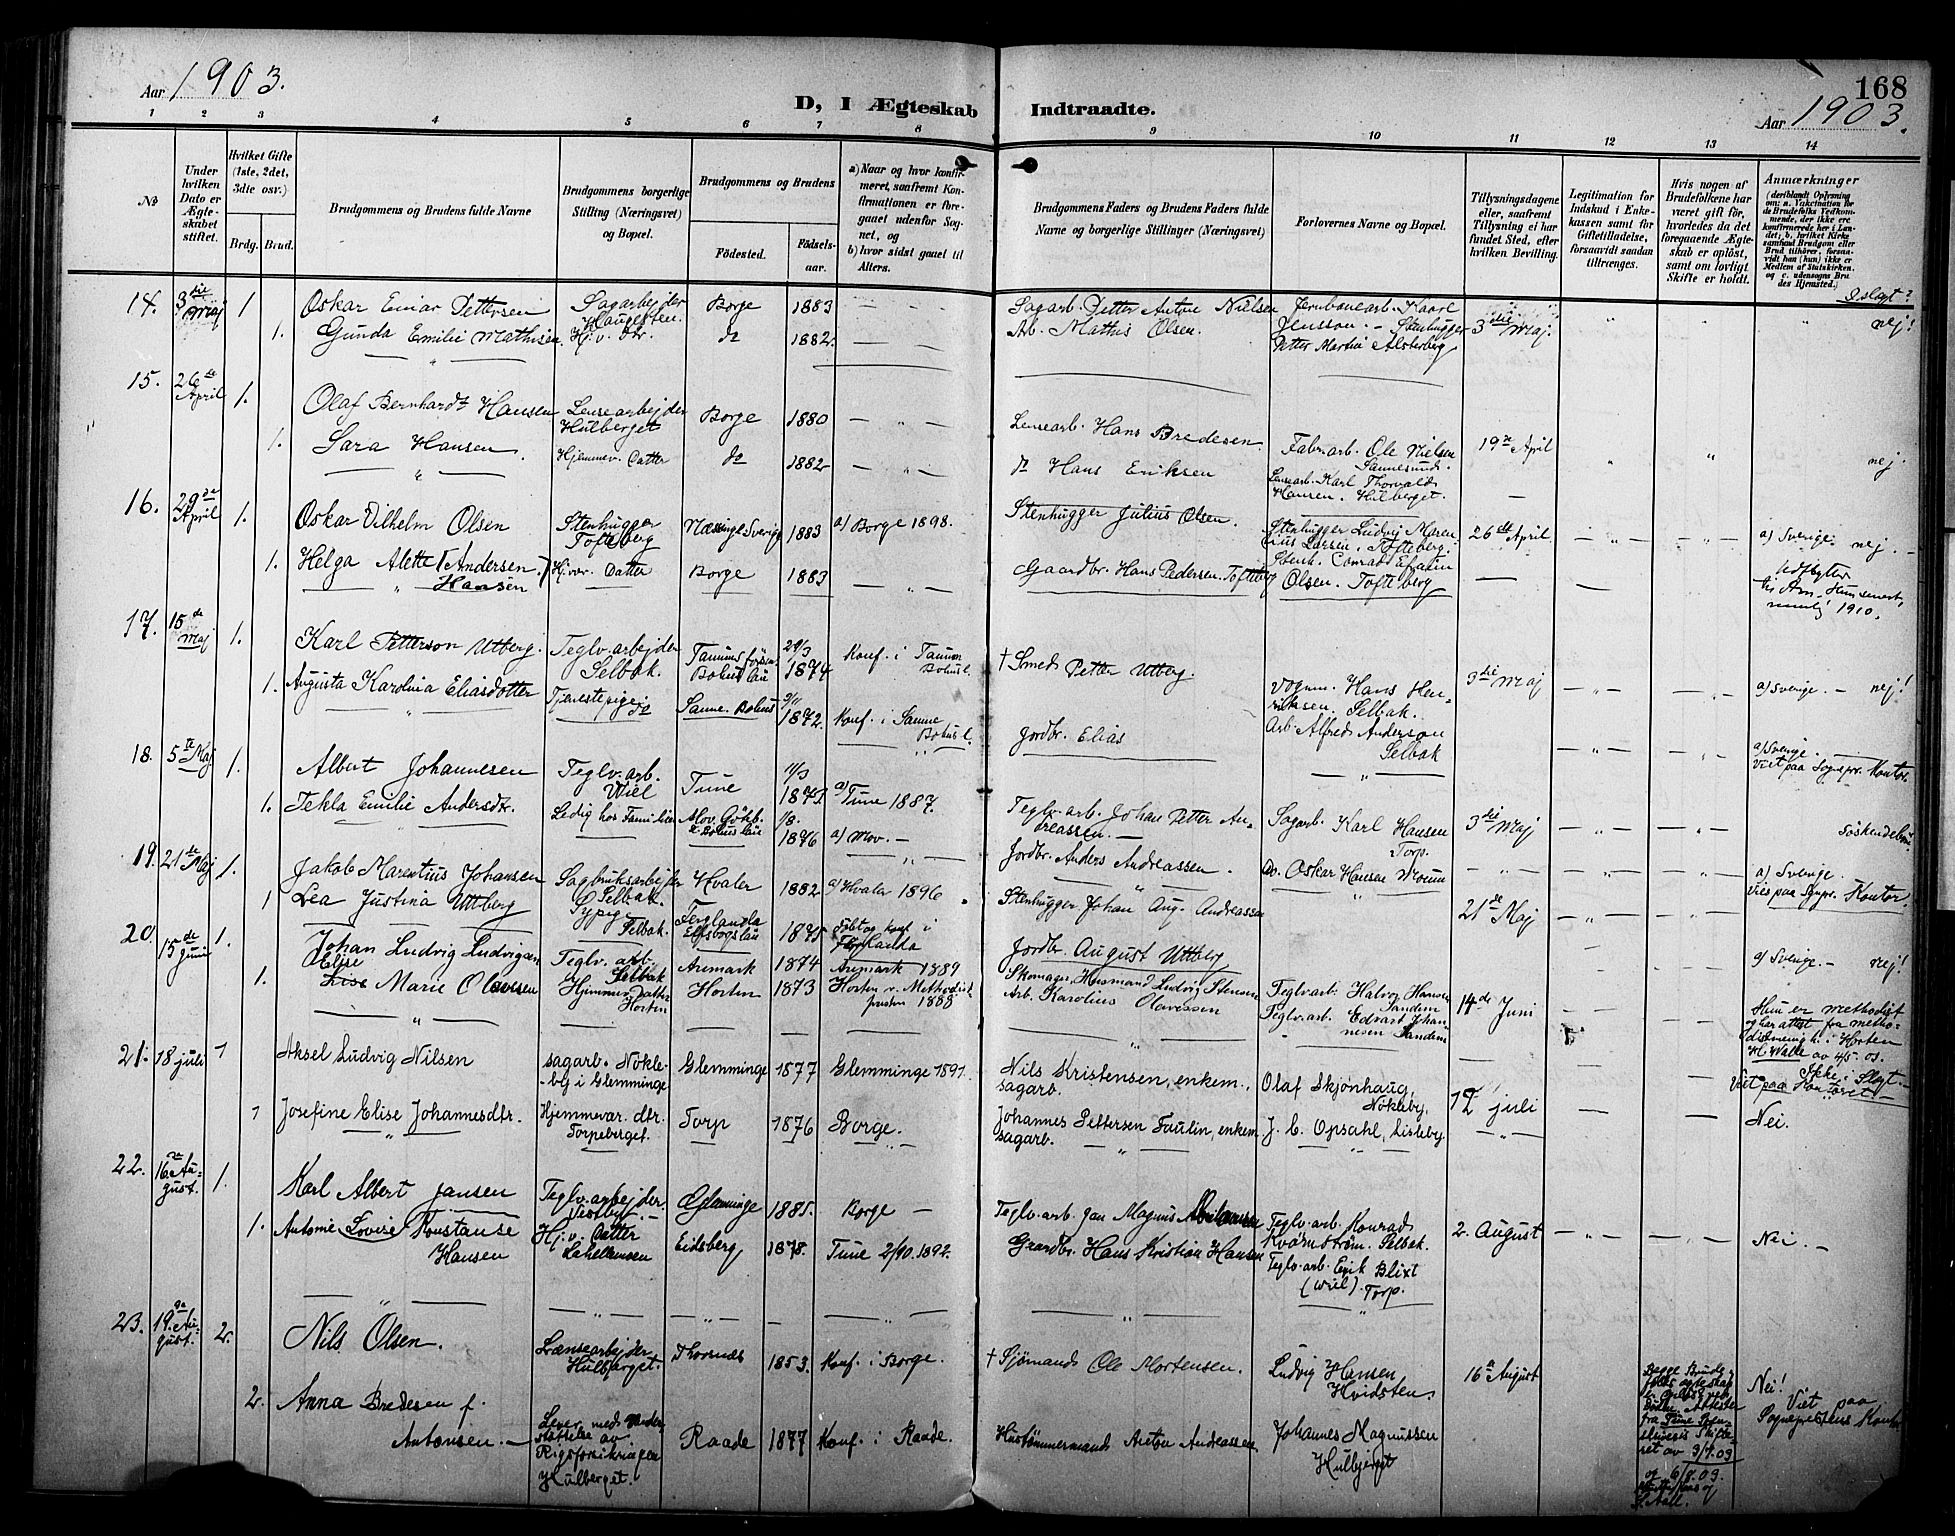 Aar 1903.
D, I Ægteskab Indtraadte.
168
Aar 1903.
1 2 3 4 5 6 7 8 9 10 11 12 13 14
No
Under hvilken Dato er Ægteskabet stiftet.
Hvilket Gifte (1ste, 2det, 3die osv.)
Brdg. Brud.
Brudgommens og Brudens fulde Navne
Brudgommens borgerlige Stilling (Næringsvei) og Bopæl.
Brudgommens og Brudens
Fødested.
Fødselsaar.
a) Naar og hvor konfirmeret, saafremt Konfirmationen er foregaaet udenfor Sognet, og
b) hvor sidst gaaet til Alters.
Brudgommens Faders og Brudens Faders fulde Navne og borgerlige Stillinger (Næringsvei)
Forlovernes Navne og Bopæl.
Tillysningsdagene eller, saafremt Tillysning ei har fundet Sted, efter hvilken Bevilling.
Legitimation for Indskud i Enkekassen samt for Giftetilladelse, forsaavidt saadan tiltrænges.
Hvis nogen af Brudefolkene har været gift før, hvorledes da det foregaaende Ægteskab er opløst, samt om lovligt Skifte er holdt.
Anmærkninger
(deriblandt Oplysning om: a. Vakcination for de Brudefolks Vedkommende, der ikke ere konfirmerede her i Landet; b. hvilket Kirkesamfund Brudgom eller Brud tilhører, forsaavidt han (hun) ikke er Medlem af Statskirken, og c. udensogns Brudes Hjemsted.)
I slægt?
14. 3die Maj 1 Oskar Einar Pettersen Sagarbejder Haugesten. Borge 1883 Sagarb. Petter Anton Nielsen Jernbanearb. Kaarl Jensson. - Stenhugger Petter Martin Alsterberg 3die Maj. nej!
1. Gunda Emilie Mathisen Hj.v. Dtr. do 1882. Arb. Mathis Olsen.
15. 26de April 1. Olaf Bernhardt Hansen Lensearbejder Hulberget Borge 1880 Lensearb. Hans Bredesen Fabr.arb. Ole Nielsen Sannesund. 19de April nej.
1. Sara Hansen. Hjemmev. Datter do 1882 do Hans Eriksen Lensearb. Karl Thorvald Hansen. Hulberget.
16. 29de April 1. Oskar Vilhelm Olsen Stenhugger Tofteberg Næsinge Sverige 1883 a) Borge 1898. Stenhugger Julius Olsen. Stenhugger Ludvig Marenius Larsen. Tofteberg. 26de April a) Sverige. nej. -
1. Helga Alette (Andersen) Hansen Hj.vær. Datter Borge 1883 Gaardbr. Hans Pedersen. Tofteberg Stenh. Conrad Efraim Olsen. Tofteberg Udflytter 1910.
17. 15de Maj 1. Karl Petterson Utberg. Teglv.arbejder Selbak. Tanum Bohuslän 29/3 1874 Konf. i Tanum Bohusl. † Smed Petter Utberg. Vognm. Hans Henriksen. Selbak. 3die Maj a) Sverige. - nej!
1. Augusta Karolina Eliasdotter Tjenestepige do Sanne. Bohus 1872. Konf. i Sanne Bohusl. Jordbr. Elias Arb. Alfred Anderson Selbak
18. 5te Maj 1. Albert Johannesen Teglv.arb. Wiel Tune 11/3 a) Tune 1887. Teglv.arb. Johan Petter Andreassen. Sagarb. Karl Hansen Torp. 3die Maj a) Sverige. - Viet paa Sognepr. Kontor.
1. Tekla Emilie Andersdtr. Ledig hos Familien 1876 a) Mov. - Jordbr. Anders Andreassen. do. Oskar Hansen Moum Søskendebørn
19. 21de Maj 1. Jakob Marentius Johansen Sagbruksarbejder Selbak. Hvaler 1882 a) Hvaler 1896 Stenhugger Johan Aug. Andreassen 21de Maj a) Sverige. Vies paa Sgpr. Kontor.
1 Lea Justina Uttberg Tjpige Selbak. Elfsborgslän 1875 Født og konf i Jordbr. August Uttberg a) Sverige. - nej!
20. 15de Juni 1. Johan Ludvig Ludvigsen Teglv. arb. Selbak Aremark 1874 Aremark 1889 Skomager, Husmand Ludvig Stensen Teglv.arb. Halvor Hansen Sandem 14de Juni
1. Elise Lise Marie Olavesen Hjemmev. Datter Horten Horten 1873 Horten v. Methodistpresten 1888 Arb. Karolius Olavessen Teglv.arb. Edvart Johannesen Sandem Hun er methodist og har attest fra Methodistmenigh. i Horten H. Walle av 4/5 03. Ikke i Slægt - Viet paa Kontoret -
21. 18 juli 1 Aksel Ludvig Nilsen sagarb. Nøkleby i Glemminge Glemminge 1877 Glemminge 1891 Nils Kristensen, enkem., sagarb. Olaf Skjønhaug, Nøkleby, 12 juli Nei.
1 Josefine Elise Johannesdtr. Hjemmevær. dtr. Torpeberget. Torp 1876 Borge. Johannes Pettersen Faulin, enkem. sagarb. J. C. Opsahl, Lisleby
22. 16de August. 1. Karl Albert Jansen Teglv.arbejder Glemminge 1885. Borge - Teglv.arb. Jan Magnus Teglv.arb. Konrad Kvarnström. Selbak. 2. August Nei. -
1. Antonie Lovise Konstanse Hansen Hj.v. Datter Eidsberg 1878. Tune 2/10. 1892. Grardbr. Hans Kristian Hansen Teglv.arb. Erik Blixt (Wiel). Torp.
23. 19. August. 2. Nils Olsen. Lænsearbejder Hulberget. Thorsnes 1853. Konf. i Borge. † Sjømand Ole Mortensen. Ludvig Hansen Hvidsten. 16de August Begge Brudefolks ægteskab fra Tune Sorenskriveris Skifteret av 3/7.03 og 6/8.03. Nei! Viet paa Sognepræstens Kontor
2. Anna Bredesen f. Antonsen. - Lever med Understøttelse av Rigsforsikringen Hulberget. Raade 1877 Konf. i Raade. Hustømmermand Anton Andreassen Johannes Magnussen Hulbjerget